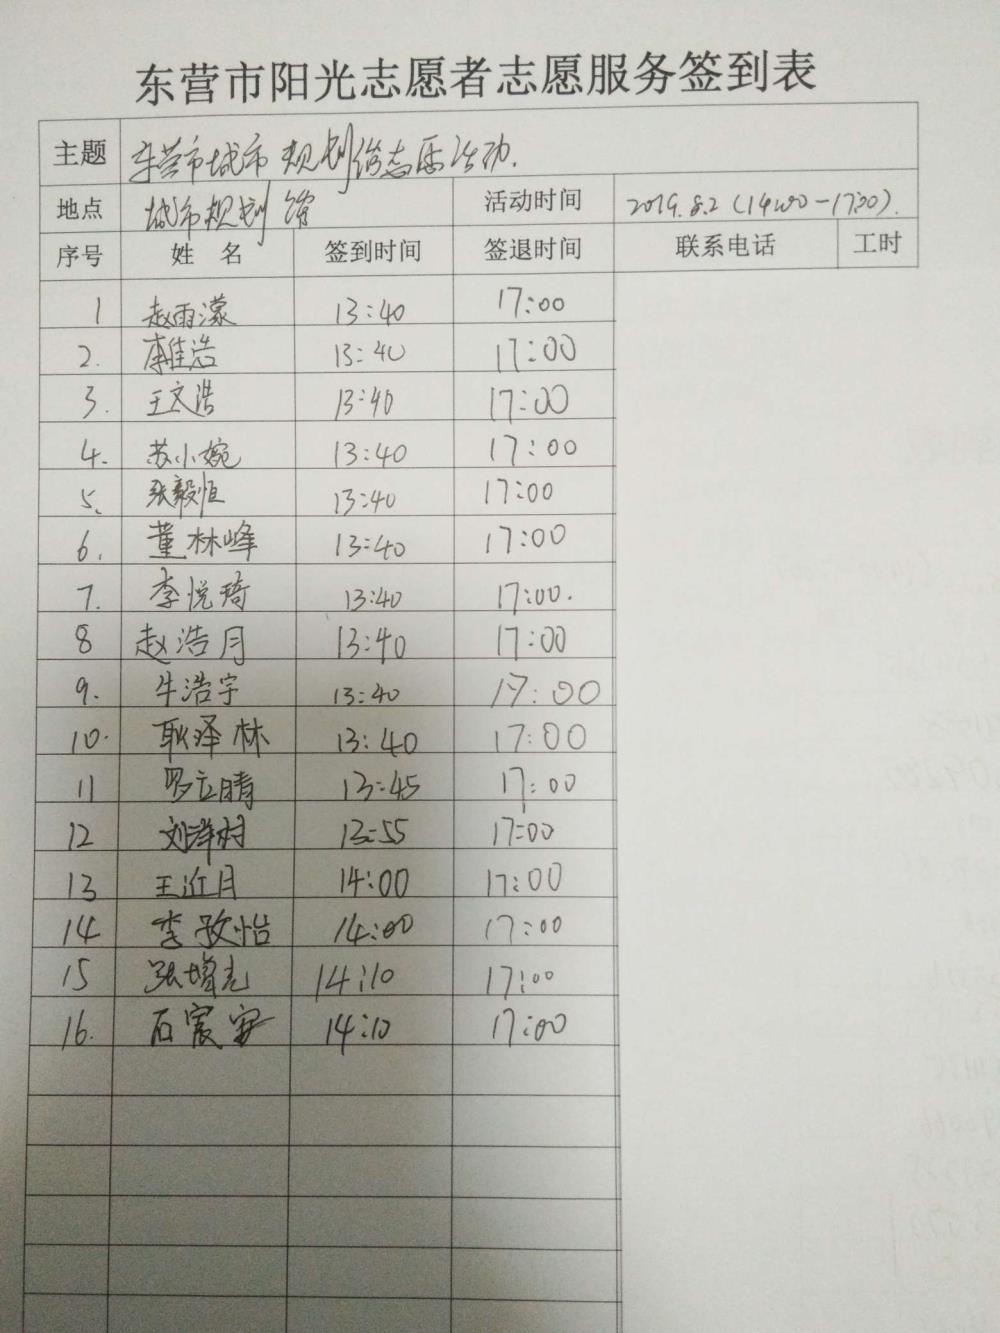 东营市阳光志愿者志愿服务签到表
主题 东营市城市规划馆志愿活动.
地点 城市规划馆 活动时间 2019.8.2 (14:00-17:00).
序号 姓名 签到时间 签退时间 联系电话 工时
1 赵雨濛 13:40 17:00
2. 李佳浩 13:40 17:00
3. 王文浩 13:40 17:00
4. 苏小婉 13:40 17:00
5. 张毅恒 13:40 17:00
6. 董林峰 13:40 17:00
7. 李悦琦 13:40 17:00.
8 赵浩月 13:40 17:00
9. 牛浩宇 13:40 17:00
10. 耿泽林 13:40 17:00
11 罗立晴 13:45 17:00
12 刘洋村 13:55 17:00
13 王近月 14:00 17:00
14 李孜怡 14:00 17:00
15 张增光 14:10 17:00
16. 石宸宇 14:10 17:00